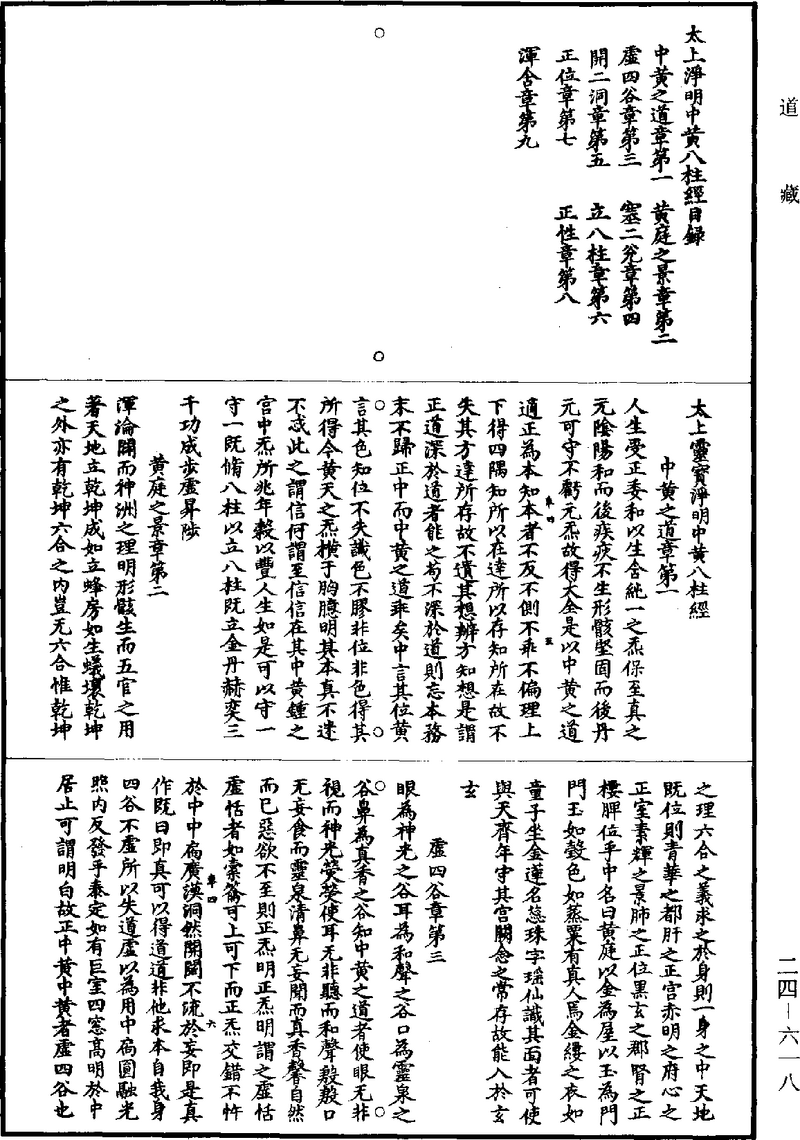 道藏
太上淨明中黃八柱經目録
中黃之道章第一　黃庭之景章第二
虛四谷章第三　塞二兊章第四
開二洞章第五　立八柱章第六
正位章第七　正性章第八
渾合章第九
太上靈寶淨明中黃八柱經
中黃之道章第一
人生受正委和以生含純一之炁保至真之
元陰陽和而後疾疢不生形骸堅固而後丹
元可守不虧元炁故得大全是以中黃之道
適正為本知本者不反不側不乖不偏理上
下得四隅知所以在達所以存知所在故不
失其方達所存故不遺其想辨方知想是謂
正道深於道者能之茍不深於道則忘本務
末不歸正中而中黃之道乖矣中言其位黃
言其色知位不失識色不膠非位非色得其
所得令黃天之炁横于胸臆明其本真不迷
不惑此之謂信何謂至信信在其中黃鍾之
宮中炁所兆年穀以豐人生如是可以守一
守一既脩八柱以立八柱既立金丹赫奕三
千功成步虛昇陟
黃庭之景章第二
渾淪闢而神洲之理明形骸生而五官之用
著天地立乾坤成如立蜂房如生蟻壤乾坤
之外亦有乾坤六合之内豈无六合惟乾坤
之理六合之義求之於身則一身之中天地
既位則青華之都肝之正宫赤明之府心之
正室素輝之景肺之正位黒玄之郡腎之正
樓脾位乎中名曰黃庭以金為屋以玉為門
門玉如瑴色如蒸粟有真人焉金縷之衣如
童子坐金蓮名蘂珠字瑶仙識其面者可使
與天齊年守其宫闕念之常存故能入於玄
玄
虛四谷章第三
眼為神光之谷耳為和聲之谷口為靈泉之
谷鼻為真香之谷知中黃之道者使眼无非
視而神光熒熒使耳无非聽而和聲敷敷口
无妄食而靈泉清鼻无妄聞而真香馨自然
而已惡欲不至則正炁明正炁明謂之虛恬
虛恬者如橐籥可上可下而正炁交錯不忤
於中中扄廣漠洞然開闢不流於妄即是真
作既曰即真可以得道道非他求本自我身
四谷不虛所以失道虛以為用中扄圓融光
照内反發乎泰定如有巨室四窓高明於中
居止可謂明白故正中黃中黃者虛四谷也
卑四　五
卑四　六
二四—六一八